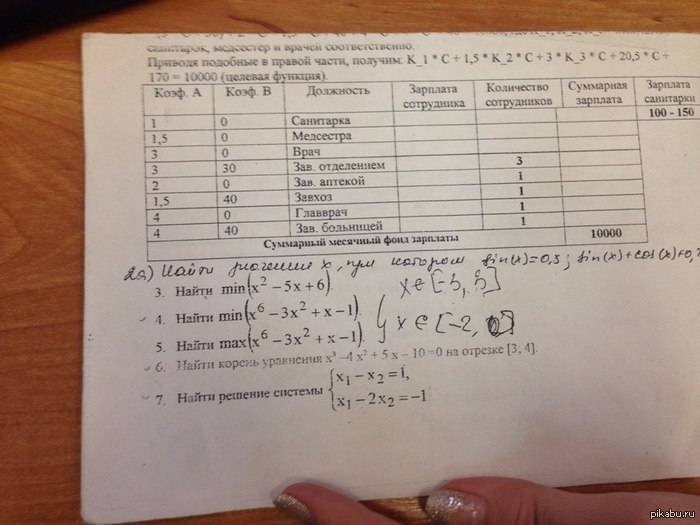 санитарок, медсестер и врачей соответственно.
Приводя подобные в правой части, получим: K_1 * C + 1,5 * K_2 * C + 3 * K_3 * C + 20,5 * C +
170 = 10000 (целевая функция).
Коэф. А Коэф. В Должность Зарплата сотрудника Количество сотрудников Суммарная зарплата Зарплата санитарки
1 0 Санитарка 100 - 150
1,5 0 Медсестра
3 0 Врач
3 30 Зав. отделением 3
2 0 Зав. аптекой 1
1,5 40 Завхоз 1
4 0 Главврач 1
4 40 Зав. больницей 1
Суммарный месячный фонд зарплаты 10000
2а) Найти значения x, при котором sin(x)=0,5; sin(x)+cos(x)=0,
3. Найти min(x² − 5x + 6). x ∈ [-5, 5]
4. Найти min(x⁶ − 3x² + x − 1).
x ∈ [-2,
5. Найти max(x⁶ − 3x² + x − 1).
6. Найти корень уравнения x³ –4 x² + 5 x – 10 =0 на отрезке [3, 4].
7. Найти решение системы { x₁ − x₂ = 1,
x₁ − 2x₂ = −1
pikabu.ru